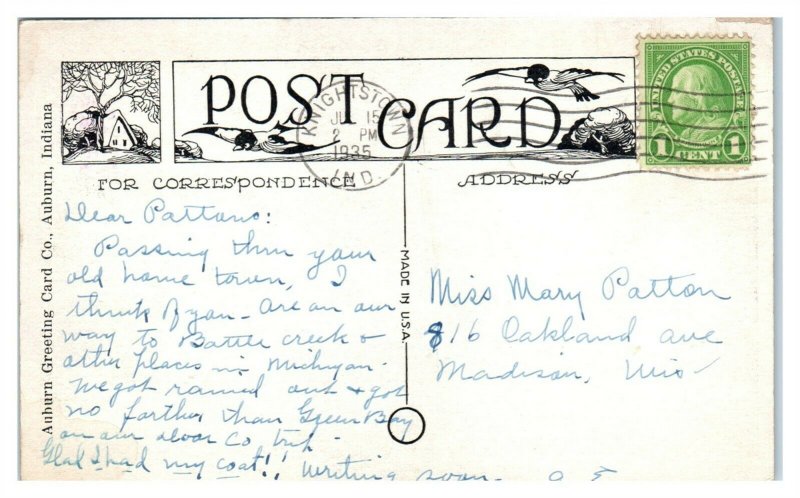 POST CARD
KNIGHTSTOWN
15
2 PM
1935
IND.
UNITED STATES POSTAGE
1 CENT 1
FOR CORRESPONDENCE
ADDRESS
Auburn Greeting Card Co., Auburn, Indiana
MADE IN U.S.A.
Dear Pattons:
Passing thru your
old home town, I
think of you. Are on our
way to Battle Creek &
other places in Michigan.
We got rained out & got
no farther than Green Bay
on our Door Co trip.
Glad I had my coat!! Writing soon.
Miss Mary Patton
816 Oakland ave
Madison, Wis